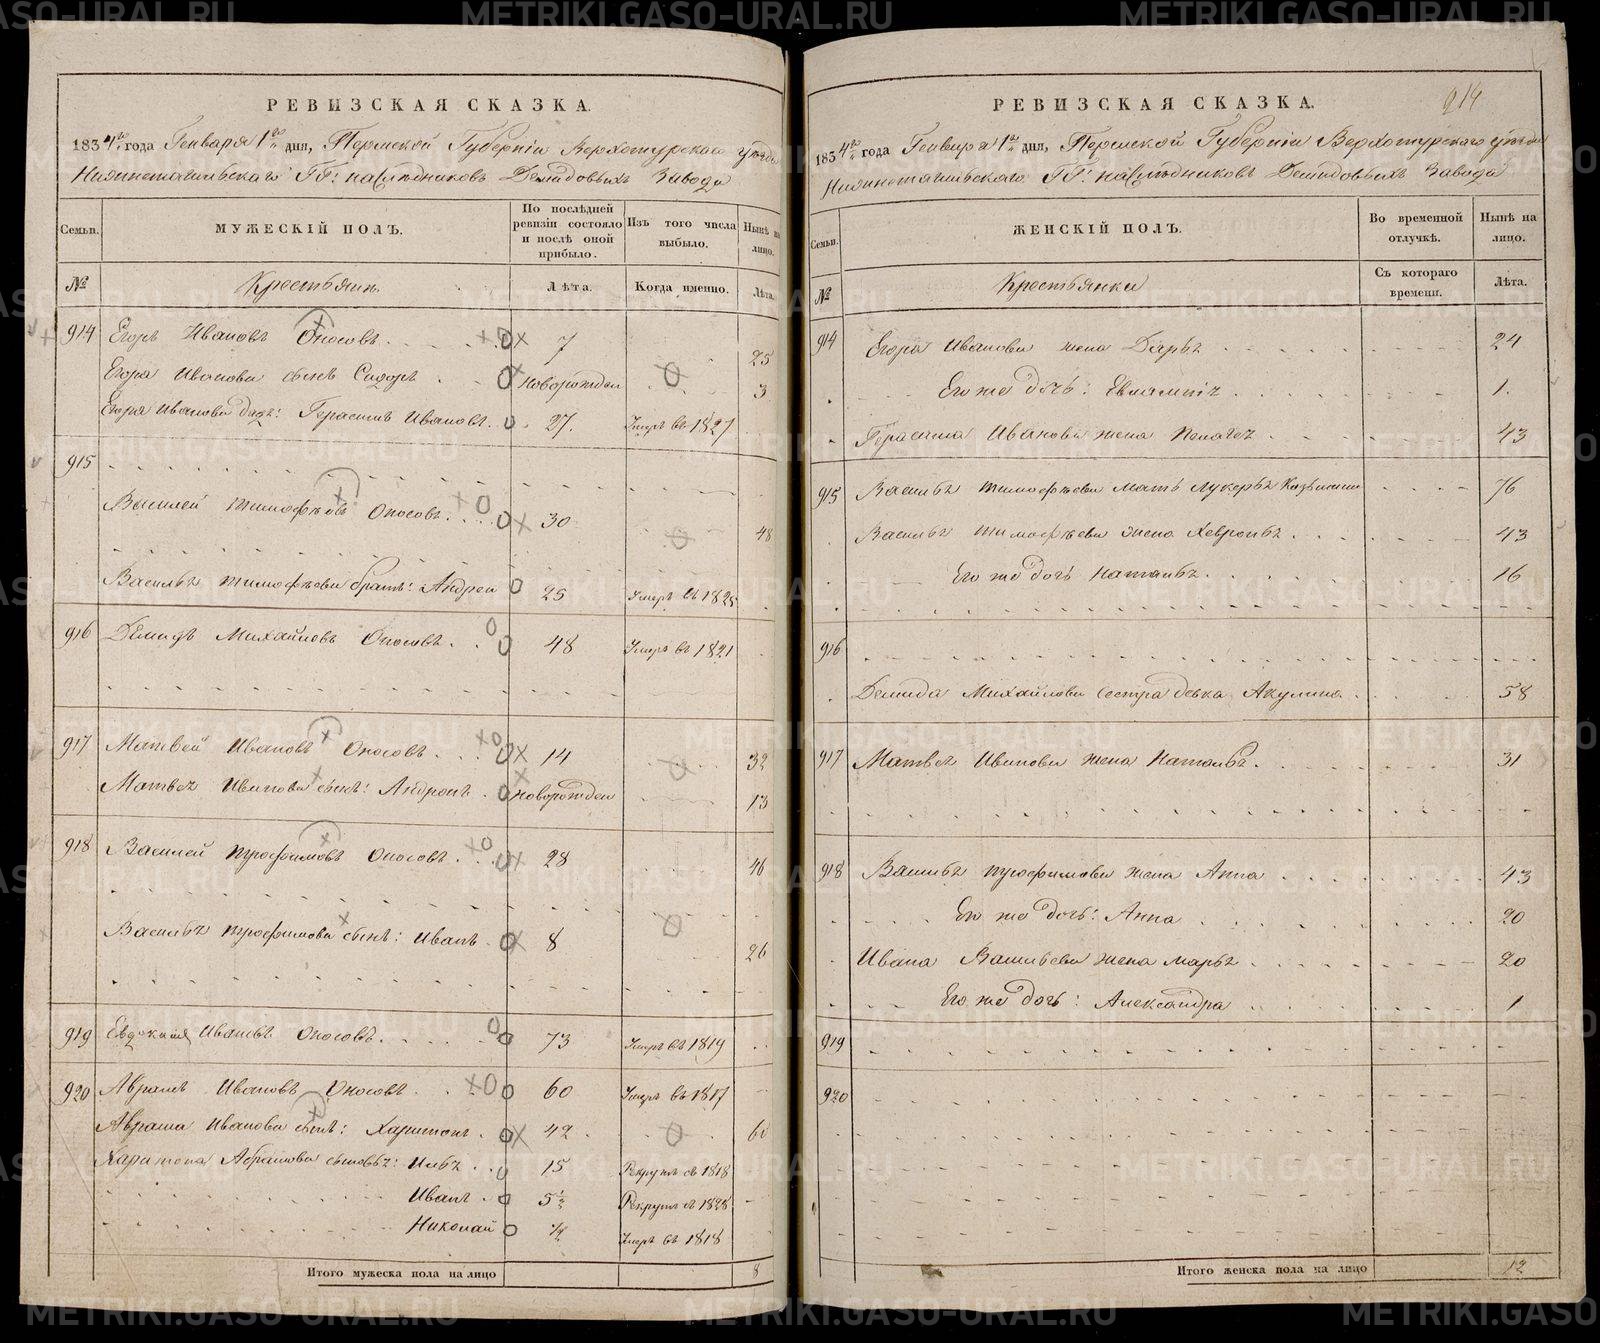 РЕВИЗСКАЯ СКАЗКА.
1834го года Генваря 1го дня, Пермской Губерніи Верхотурскаго уѣзда
Нижнетагильскаго ГГ: наслѣдниковъ Демидовыхъ Завода
Семьи.
МУЖЕСКІЙ ПОЛЪ.
По послѣдней ревизіи состояло и послѣ оной прибыло.
Изъ того числа выбыло.
Нынѣ на лицо.
№
Крестьянъ
Лѣта.
Когда именно.
Лѣта.
914 Егоръ Ивановъ Оносовъ 7 25
Егора Иванова сынъ Сидоръ Новорожден 3
Егора Иванова дядя: Герасимъ Ивановъ 27. Умеръ въ 1827
915
Василей Тимофѣевъ Оносовъ 30 48
Василья Тимофѣева братъ: Андрей 25 Умеръ въ 1825
916 Демидъ Михайловъ Оносовъ 48 Умеръ въ 1821
917 Матвей Ивановъ Оносовъ 14 32
Матвея Иванова сынъ: Андронъ Новорожден 13
918 Василей Трофимовъ Оносовъ 28 46
Василья Трофимова сынъ: Иванъ 8 26
919 Евдокимъ Ивановъ Оносовъ 73 Умеръ въ 1819
920 Аврамъ Ивановъ Оносовъ 60 Умеръ въ 1817
Аврама Иванова сынъ: Харитонъ 42 60
Харитона Абрамова сыновья: Илья 15 Рекрутъ въ 1818
Иванъ 5½ Рекрутъ въ 1828
Николай Умеръ въ 1818
Итого мужеска пола на лицо 8
РЕВИЗСКАЯ СКАЗКА.
914
1834го года Генваря 1го дня, Пермской Губерніи Верхотурскаго уѣзда
Нижнетагильскаго ГГ: наслѣдниковъ Демидовыхъ Завода
Семьи.
ЖЕНСКІЙ ПОЛЪ.
Во временной отлучкѣ.
Нынѣ на лицо.
№
Крестьянки
Съ котораго времени.
Лѣта.
914 Егора Иванова жена Дарья 24
Его же дочь: Евлампія 1.
Герасима Иванова жена Пелагея 43
915 Василья Тимофѣева мать Лукерья Козьмина 76
Василья Тимофѣева жена Хевронья 43
Его же дочь Наталья 16
916
Демида Михайлова сестра девка Акулина 58
917 Матвея Иванова жена Наталья 31
918 Василья Трофимова жена Анна 43
Его же дочь: Анна 20
Ивана Васильева жена Марья 20
Его же дочь: Александра 1
919
920
Итого женска пола на лицо 12
METRIKI.GASO-URAL.RU